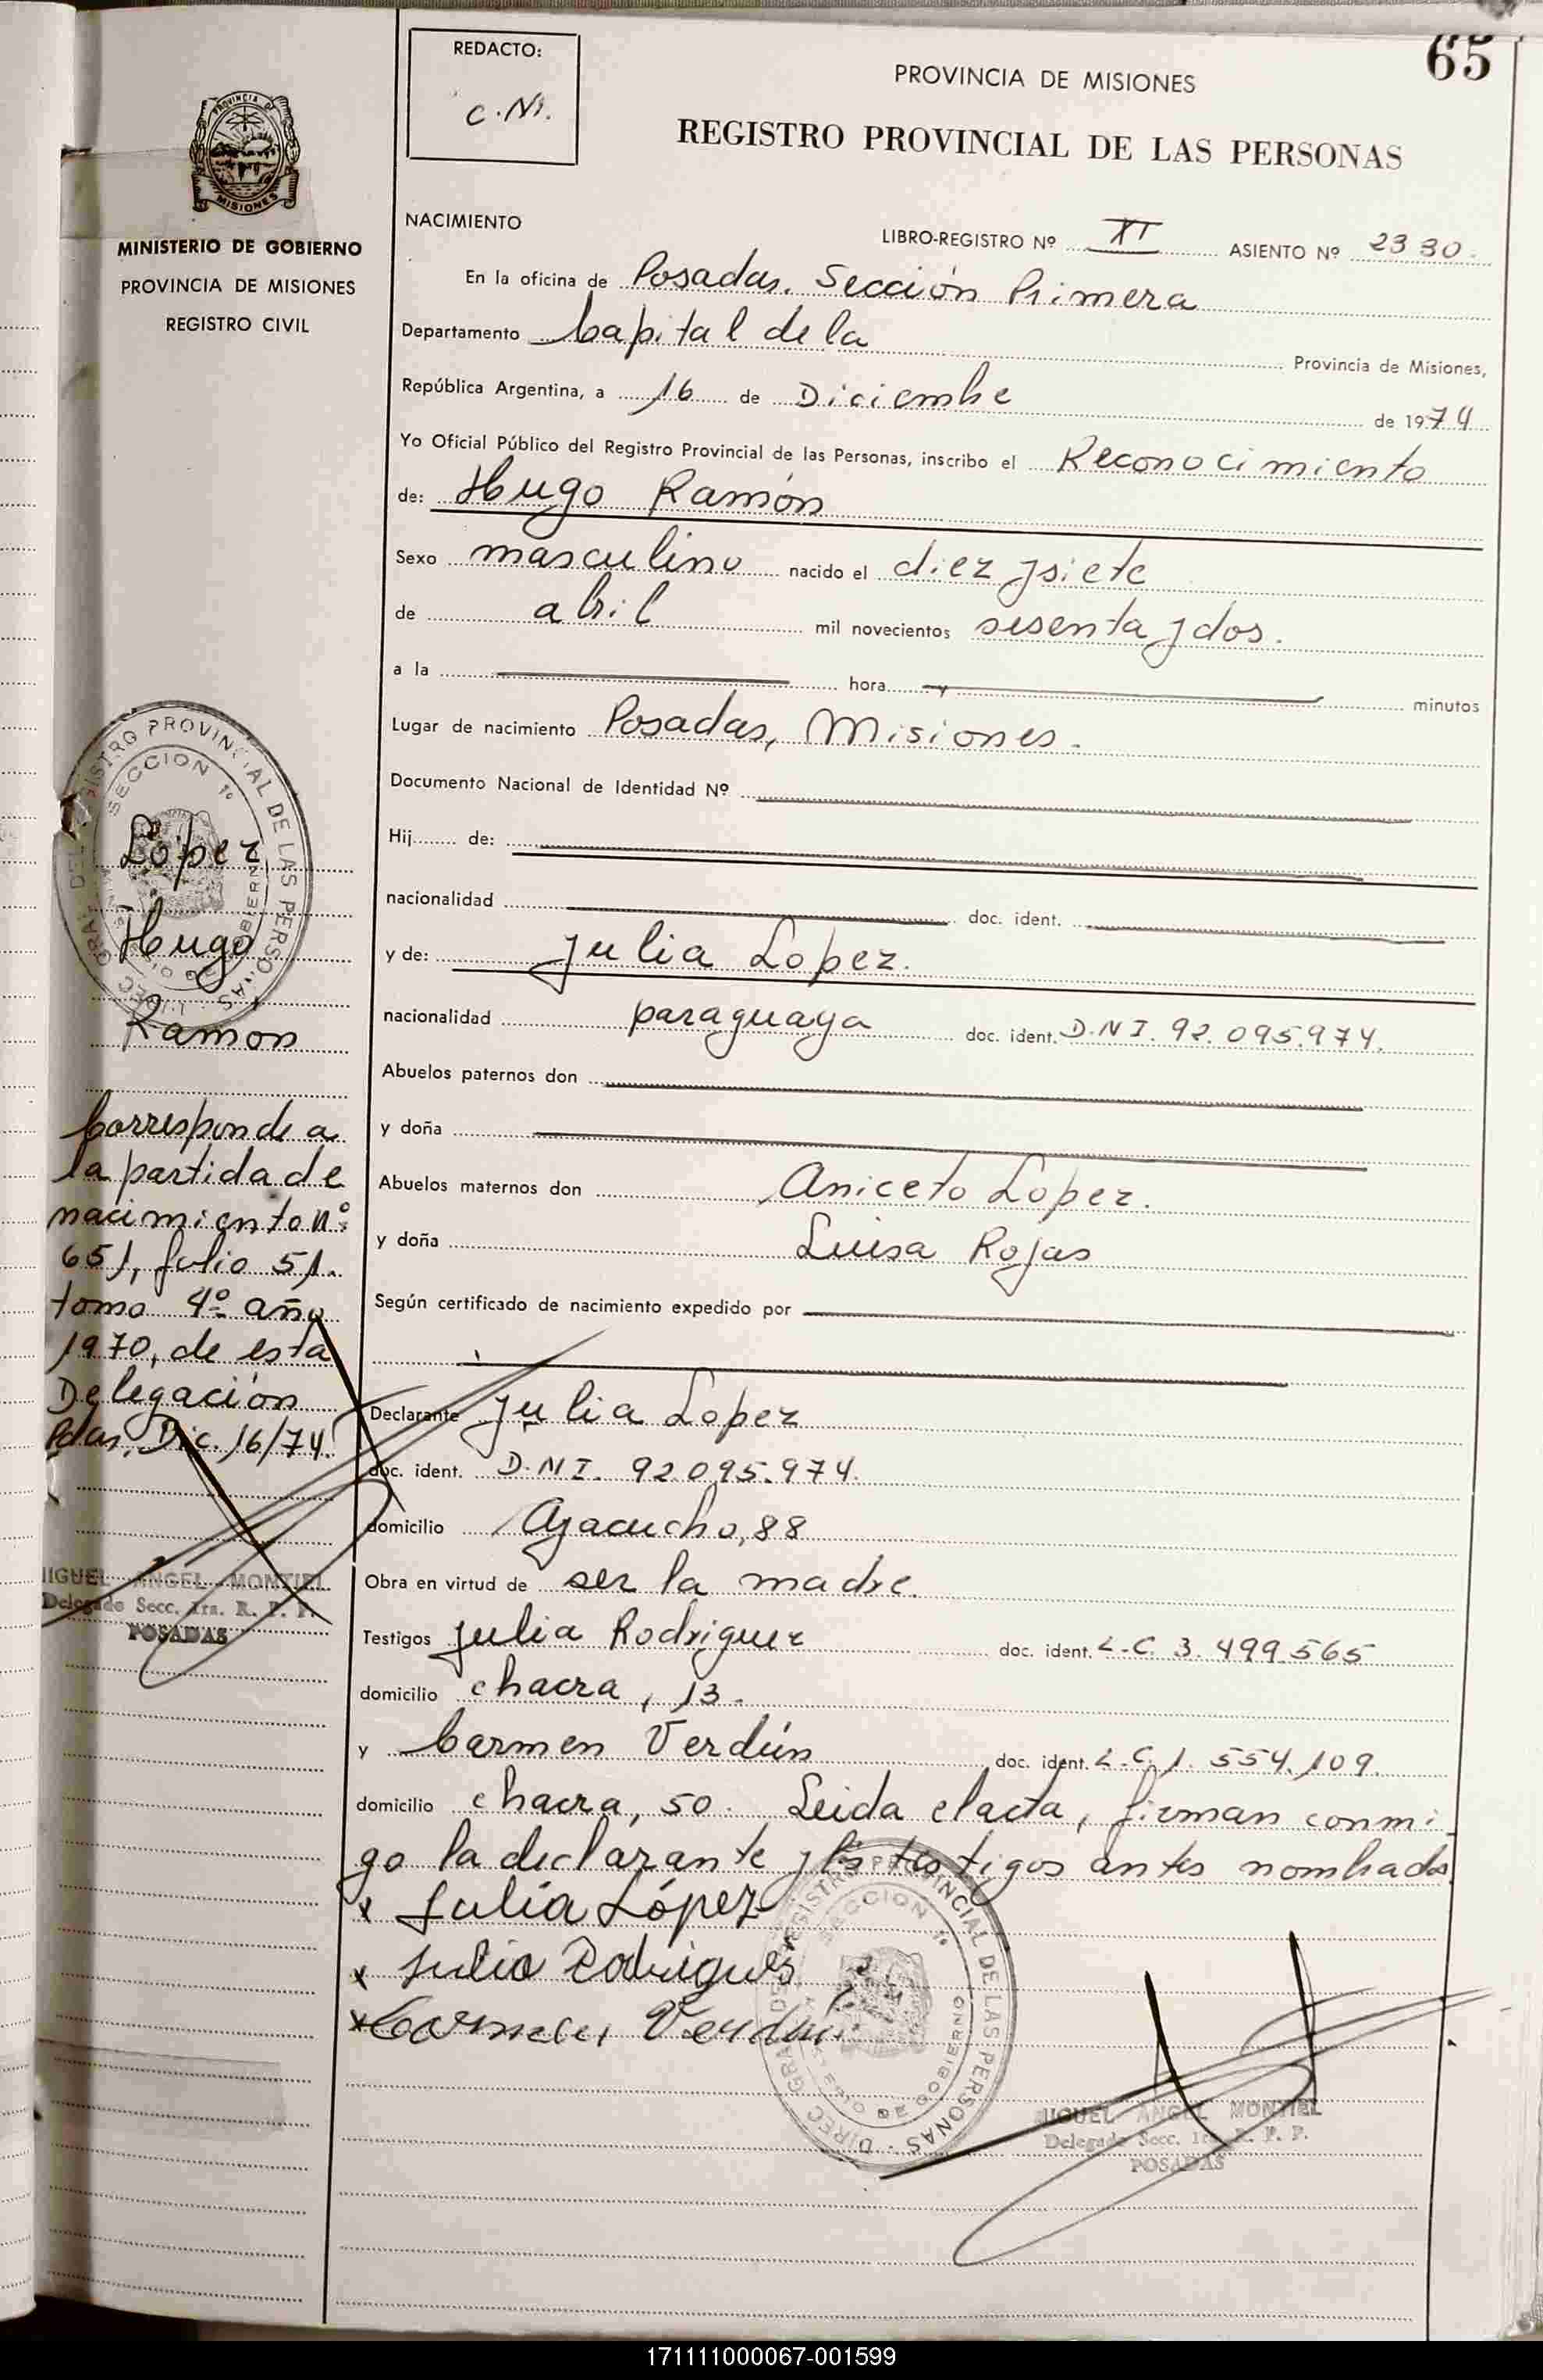 65
REDACTO:
C. N.
PROVINCIA DE MISIONES
REGISTRO PROVINCIAL DE LAS PERSONAS
PROVINCIA DE
MISIONES
MINISTERIO DE GOBIERNO
PROVINCIA DE MISIONES
REGISTRO CIVIL
NACIMIENTO
LIBRO-REGISTRO Nº XI ASIENTO Nº 2330.
En la oficina de Posadas. Sección Primera
Departamento Capital de la Provincia de Misiones,
República Argentina, a 16 de Diciembre de 1974
Yo Oficial Público del Registro Provincial de las Personas, inscribo el Reconocimiento
de: Hugo Ramón
Sexo masculino nacido el diez y siete
de abril mil novecientos sesenta y dos.
a la hora y minutos
Lugar de nacimiento Posadas, Misiones.
Documento Nacional de Identidad Nº
Hij de:
nacionalidad doc. ident.
y de: Julia Lopez.
nacionalidad paraguaya doc. ident. D.N I. 92.095.974.
Abuelos paternos don
y doña
Abuelos maternos don Aniceto Lopez.
y doña Luisa Rojas
Según certificado de nacimiento expedido por
Declarante Julia Lopez
doc. ident. D.N I. 92.095.974.
domicilio Ayacucho, 88
Obra en virtud de ser la madre.
Testigos Julia Rodriguez doc. ident. L.C. 3.499.565
domicilio chacra, 13.
y Carmen Verdún doc. ident. L.C. 1.554.109.
domicilio chacra, 50. Leida el acta, firman conmi-
go la declarante y los testigos antes nombrados
x Julia López
x Julia Rodrigues
x Carmen Verdun
REGISTRO PROVINCIAL DE LAS PERSONAS - DIREC GRAL DEL
SECCION 1º
DE GOBIERNO
MIGUEL ANGEL MONTIEL
Delegado Secc. 1ra. R. P. P.
POSADAS
REGISTRO PROVINCIAL DE LAS PERSONAS - DIREC GRAL DEL
SECCION 1º
DE GOBIERNO
López
Hugo
Ramon
Corresponde a
la partida de
nacimiento nº
651, folio 51.
tomo 4º año
1970, de esta
Delegación
Pdas, Dic. 16/74.
MIGUEL ANGEL MONTIEL
Delegado Secc. 1ra. R. P. P.
POSADAS
171111000067-001599